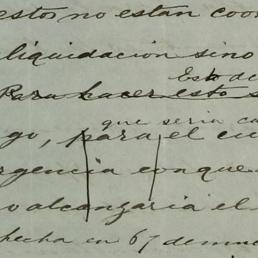 estos no estan coor
liquidacion sino
Esto de
Para hacer esto s
que seria ca
go, para el cu
rgencia con que
o alcanzaria el
fecha en 67 de